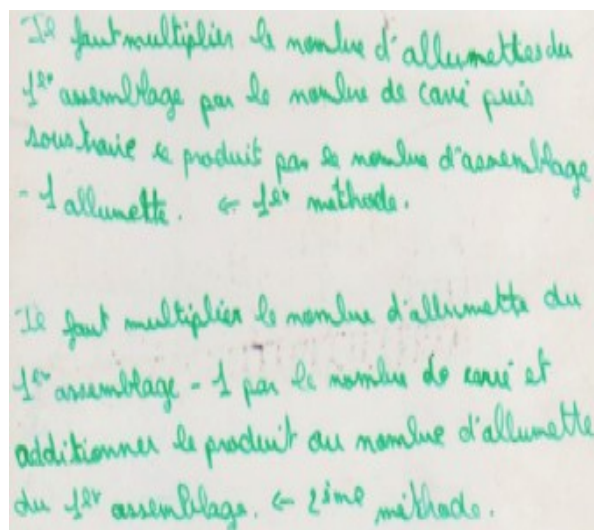 Il faut multiplier le nombre d'allumettes du
1er assemblage par le nombre de carré puis
soustraire le produit par le nombre d'assemblage
- 1 allumette. ← 1er méthode.
Il faut multiplier le nombre d'allumette du
1er assemblage - 1 par le nombre de carré et
additionner le produit au nombre d'allumette
du 1er assemblage. ← 2ime méthode.